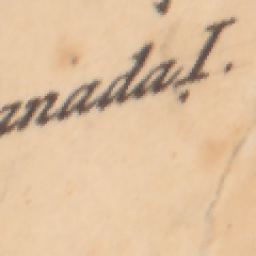 anada I.